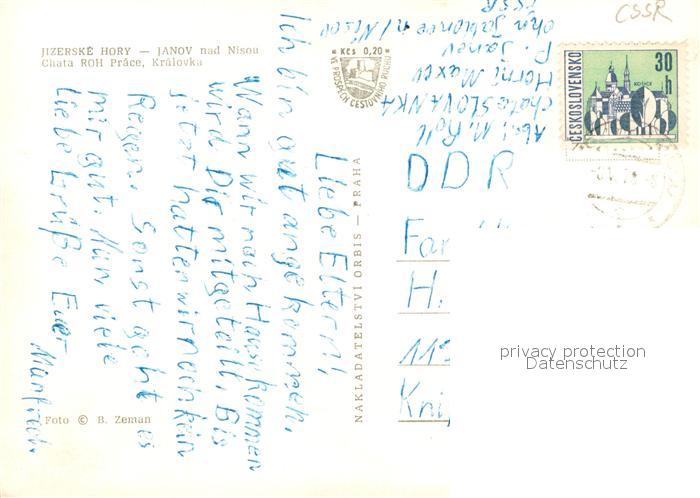 JIZERSKÉ HORY — JANOV nad Nisou
Chata ROH Práce, Královka
Kčs 0,20
VE PROSPĚCH CESTOVNÍHO RUCHU
ČSSR
ČESKOSLOVENSKO
30 h
KOŠICE
Liebe Eltern!
Ich bin gut angekommen.
Wann wir nach Haus kommen
wird Dir mitgeteilt. Bis
jetzt hatten wir noch kein
Regen. Sonst geht es
mir gut. Nun viele
liebe Grüße Euer
Manfred.
NAKLADATELSTVÍ ORBIS — PRAHA
Abs. M.
Chata SLOVANKA
Horní Maxov
P. Janov
okr. Jablonec n/Nisou
ČSSR
DDR
Fa
H.
Foto © B. Zeman
privacy protection
Datenschutz